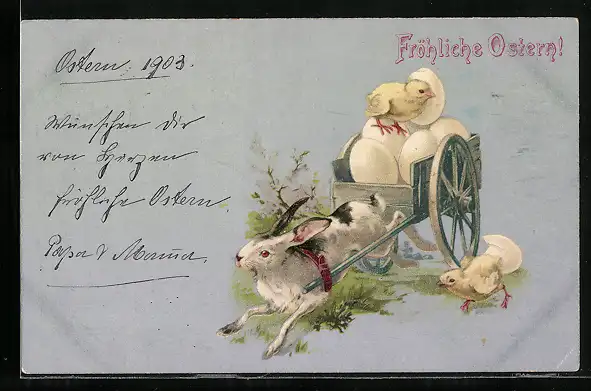 Fröhliche Ostern!
Ostern 1903.
Wünschen Dir
von Herzen
fröhliche Ostern.
Papa & Mama.